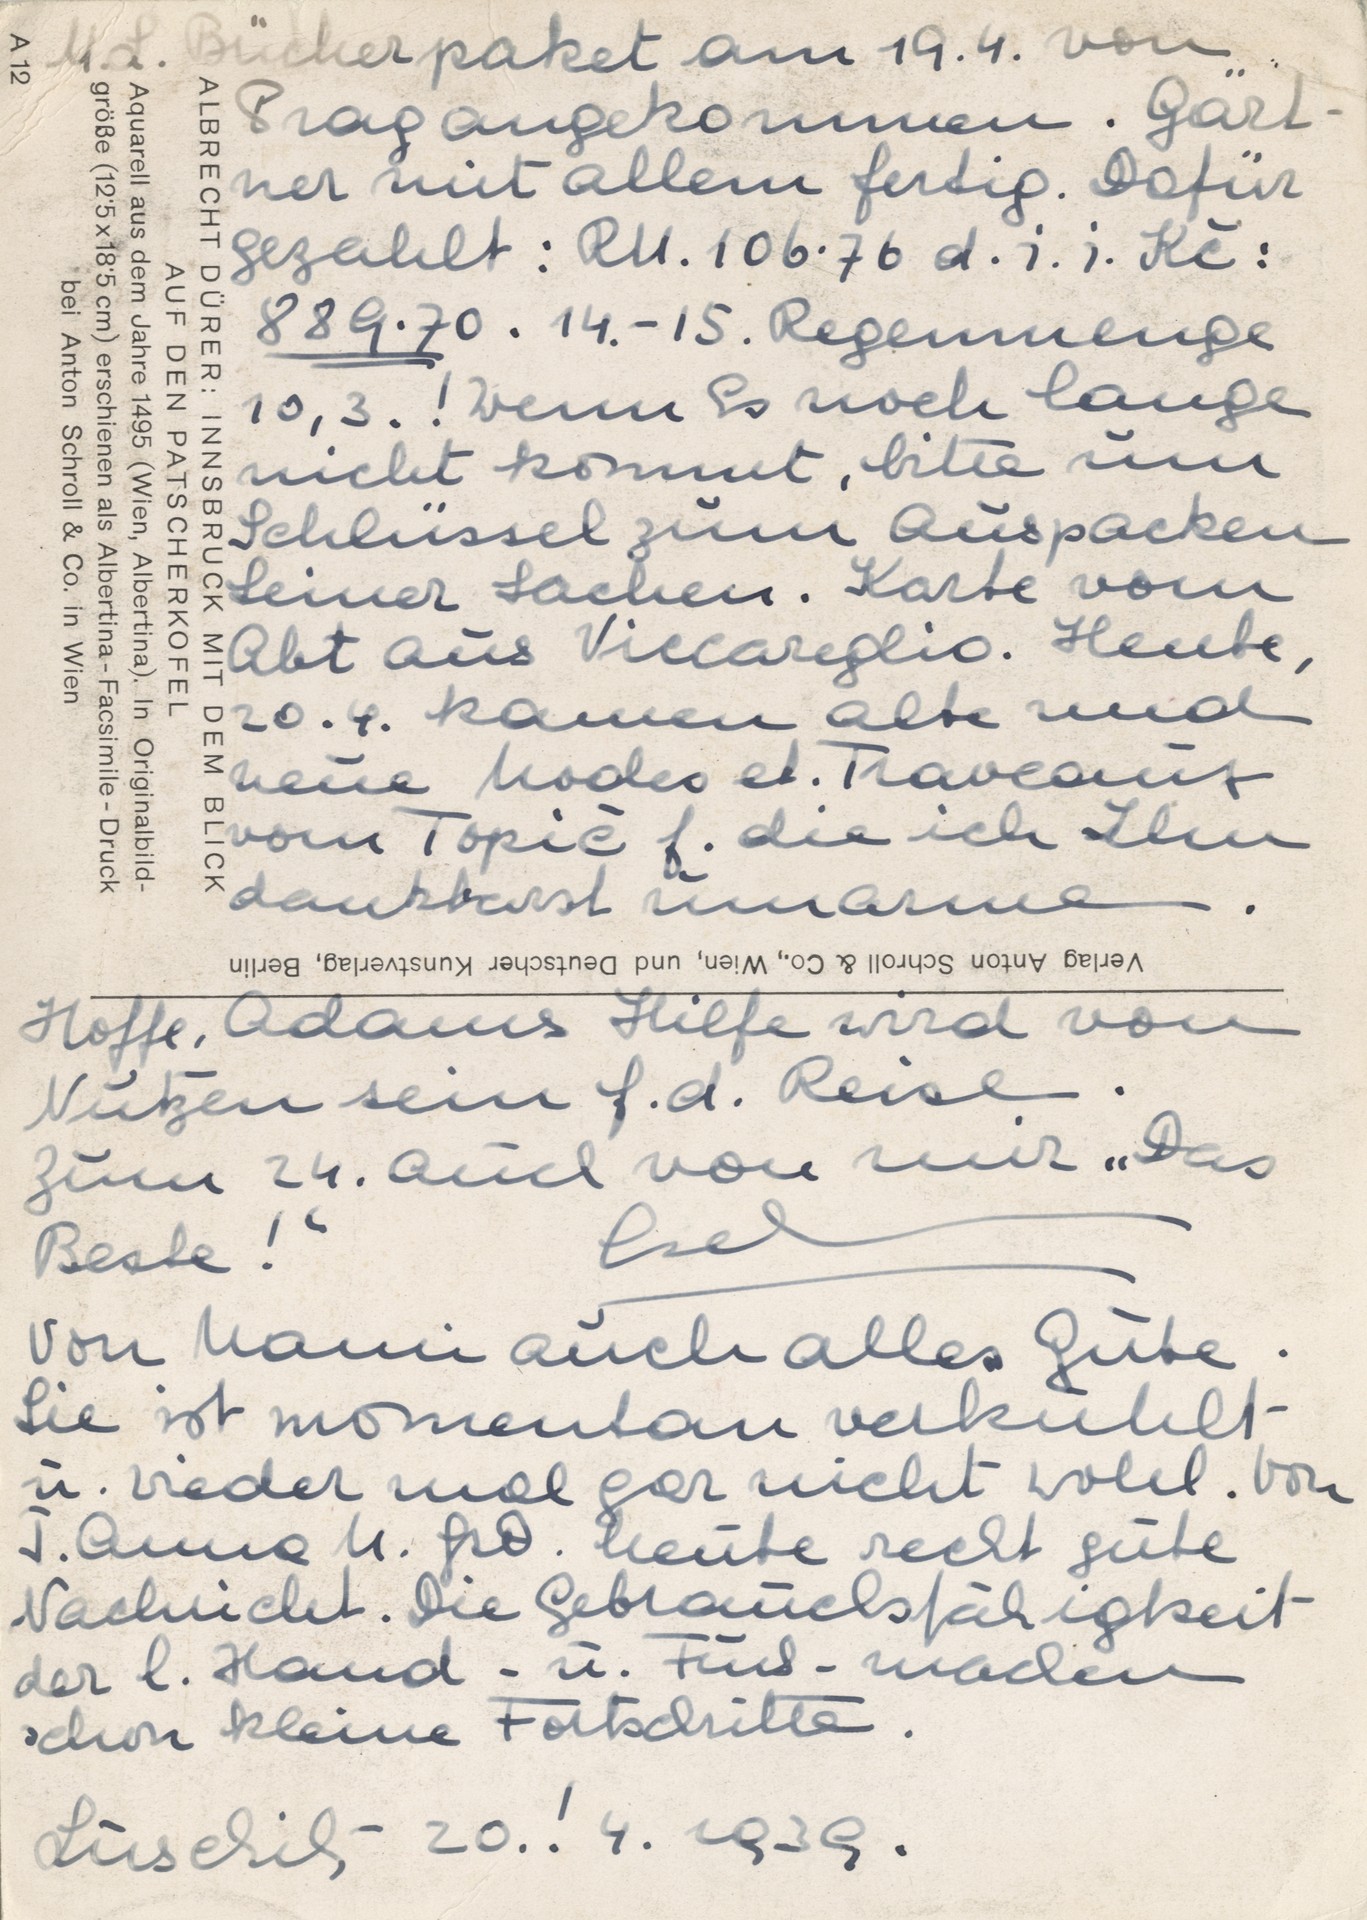 M. L. Bücherpaket am 19.4. von
Prag angekommen. Gärt-
ner mit allem fertig. Dafür
gezahlt: RM. 106·76 d. i. i. Kč:
889·70. 14.-15. Regenmenge
10,3.! Wenn Es noch lange
nicht kommt, bitte um
Schlüssel zum Auspacken
Seiner Sachen. Karte vom
Abt aus Viccareglio. Heute,
20.4. kamen alte und
neue Modes et. Traveaux
vom Topič f. die ich Ihm
dankbarst umarme.
Hoffe, Adams Hilfe wird von
Nutzen sein f. d. Reise.
Zum 24. auch von mir „Das
Beste!“ Esel
Von Mami auch alles Gute.
Sie ist momentan verkühlt
u. wieder mal gar nicht wohl. Von
T. Anna M. heute recht gute
Nachricht. Die Gebrauchsfähigkeit
der l. Hand - u. Fus - machen
schon kleine Fortschritte.
20.! 4. 1939.
ALBRECHT DÜRER: INNSBRUCK MIT DEM BLICK
AUF DEN PATSCHERKOFEL
Aquarell aus dem Jahre 1495 (Wien, Albertina). In Originalbild-
größe (12'5 x 18'5 cm) erschienen als Albertina-Facsimile-Druck
bei Anton Schroll & Co. in Wien
A 12
Verlag Anton Schroll & Co., Wien, und Deutscher Kunstverlag, Berlin